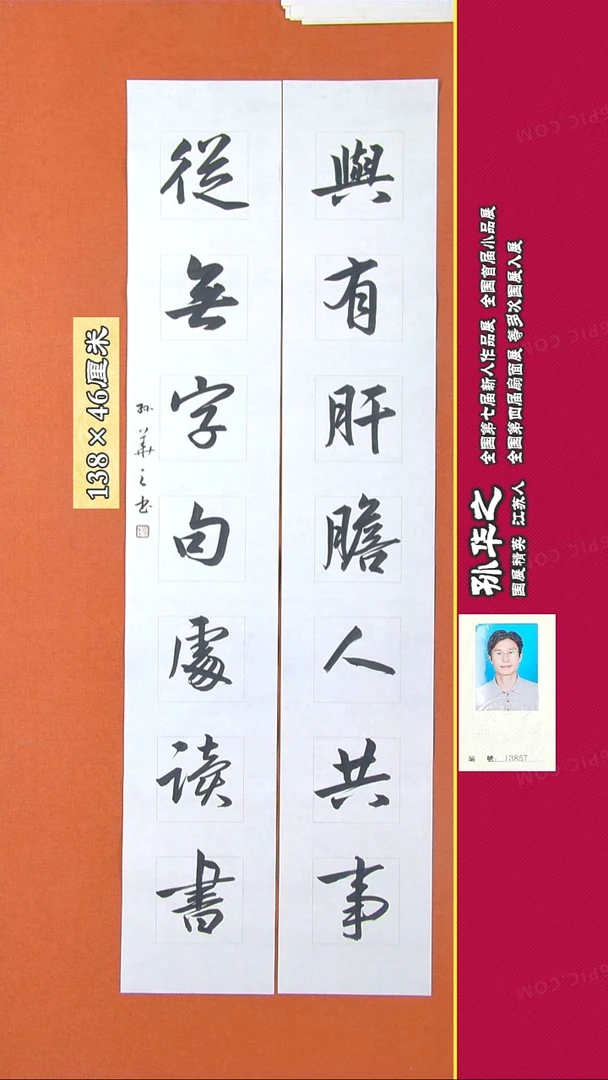 與有肝膽人共事
從無字句處读書
孙華之书
138×46厘米
孙华之
国展精英 江苏人
全国第七届新人作品展 全国首届小品展
全国第四届扇面展 等多次国展入展
編 號：13857